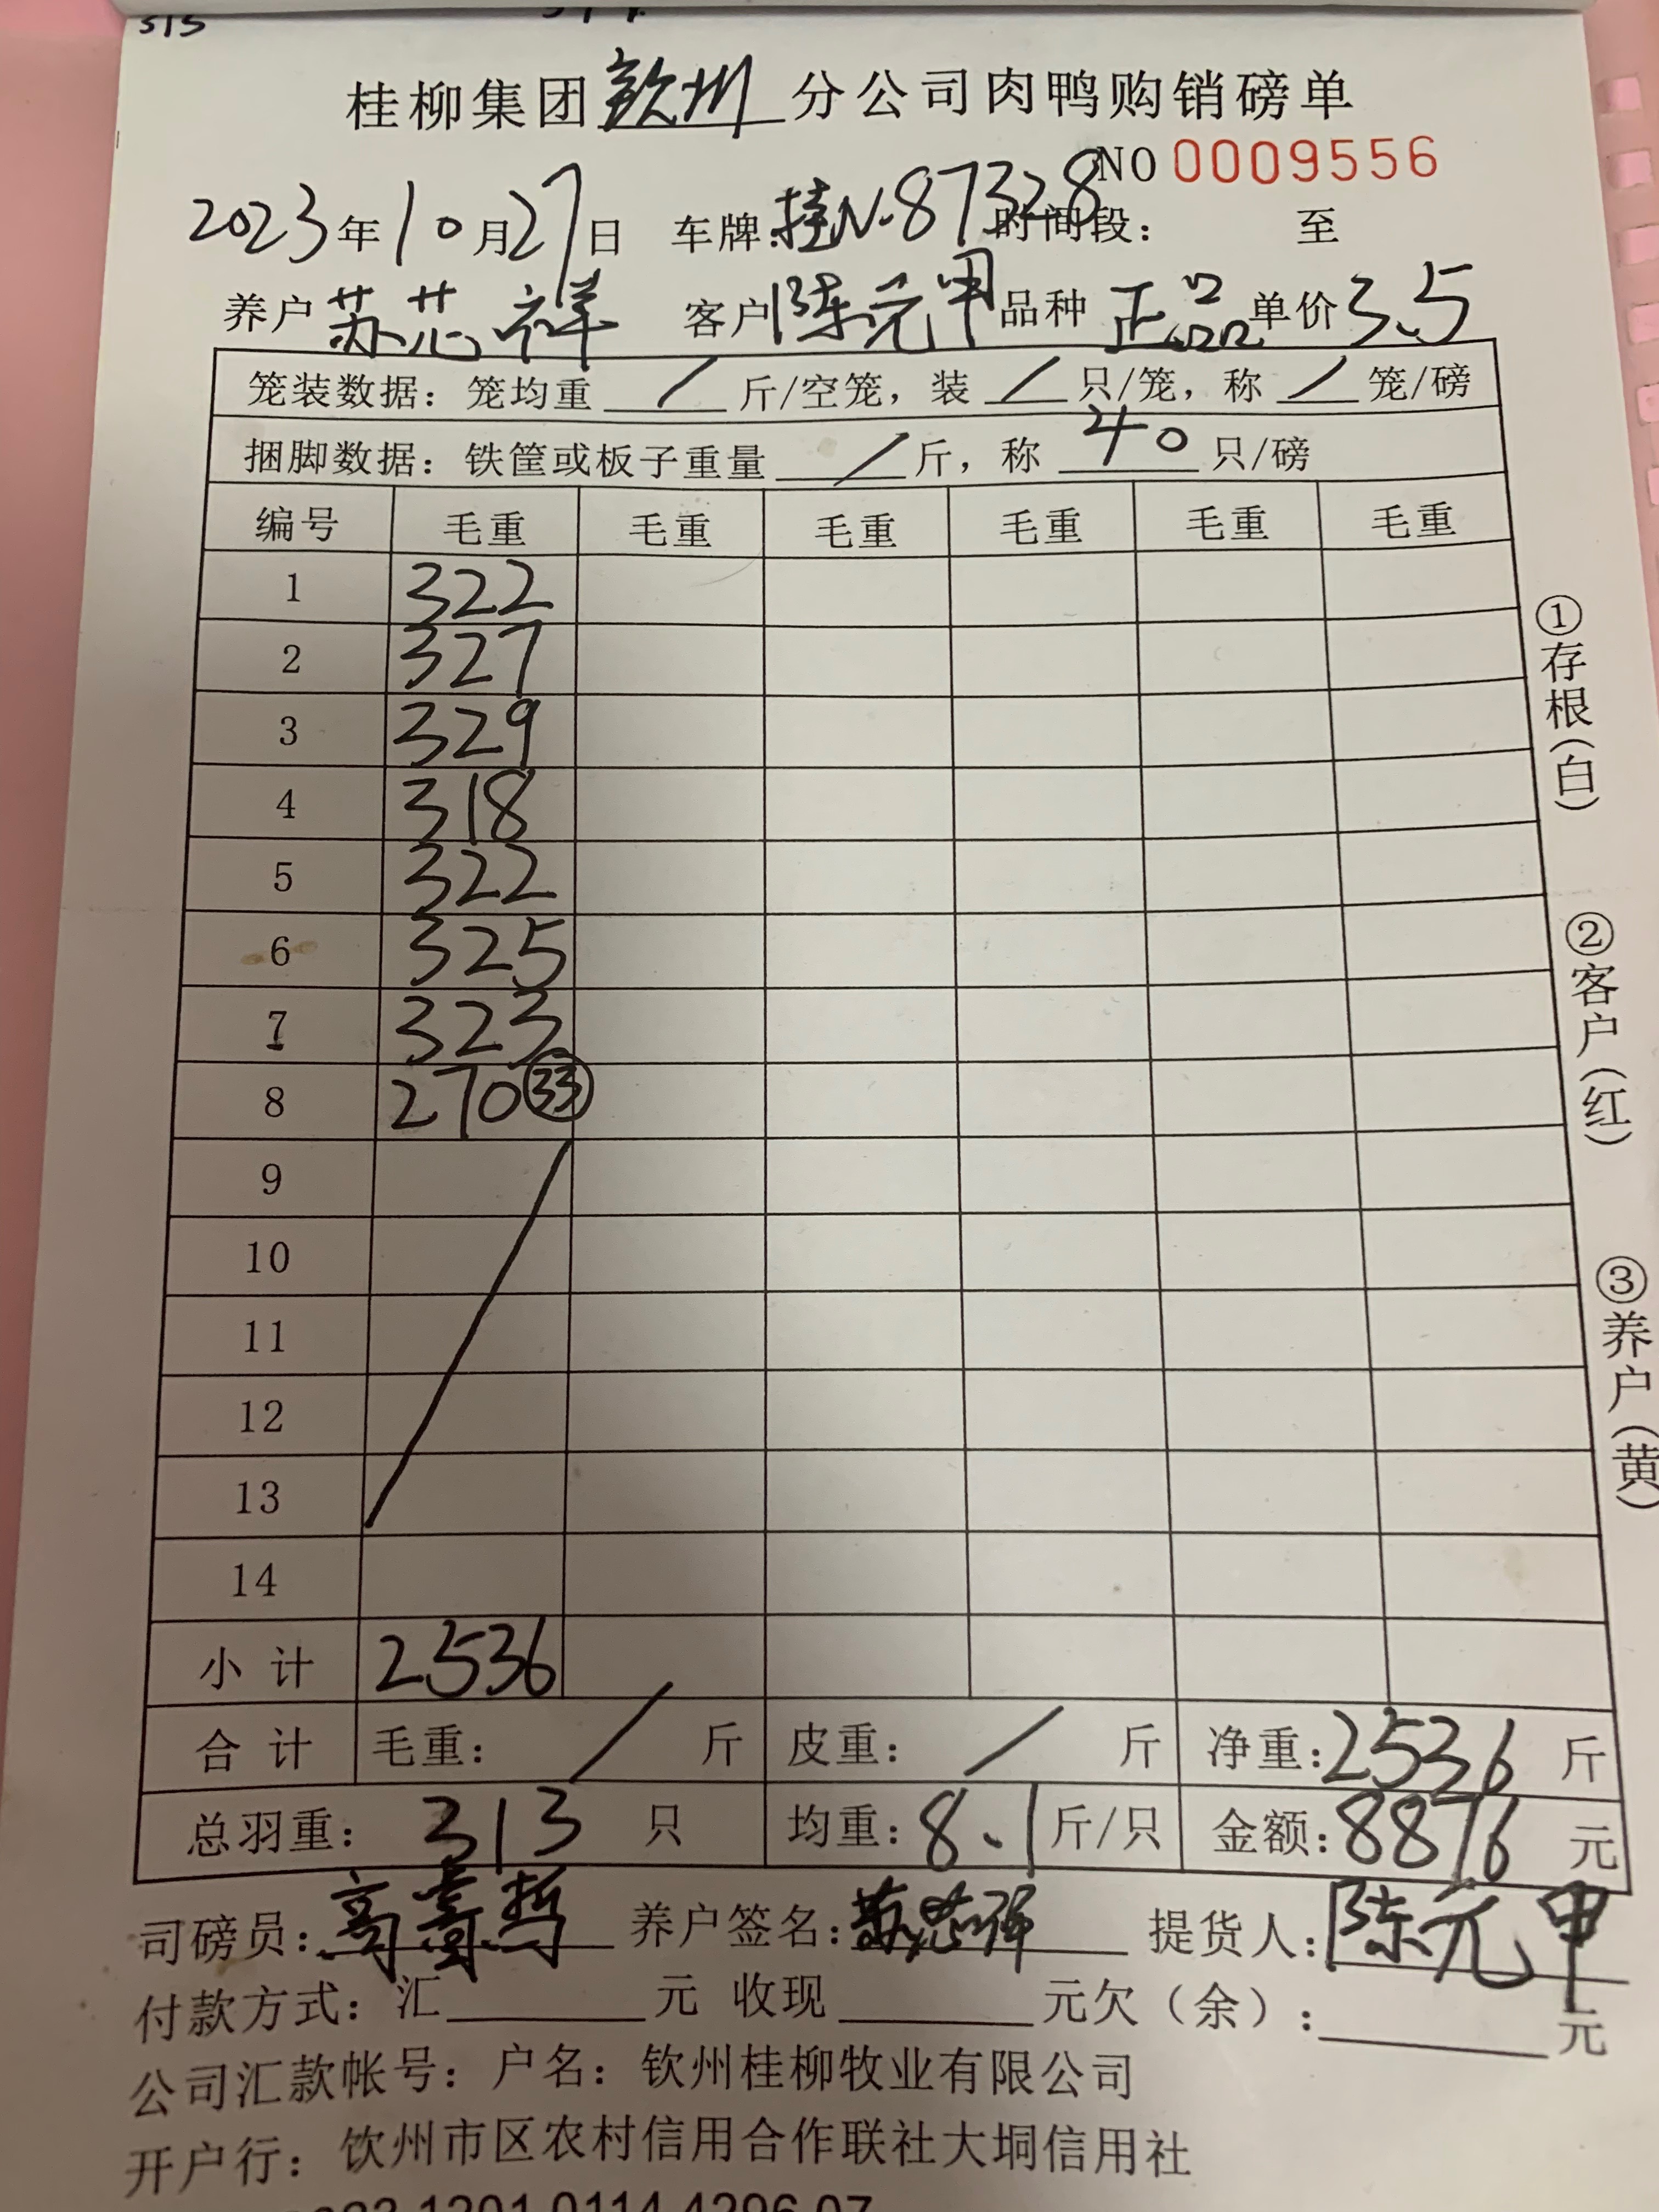 315
桂柳集团钦州分公司肉鸭购销磅单
NO 0009556
2023年10月27日 车牌:桂N.87328 时间段: 至
养户 苏芯祥 客户 陈元甲 品种 正品 单价 3.5
笼装数据: 笼均重 / 斤/空笼, 装 / 只/笼, 称 / 笼/磅
捆脚数据: 铁筐或板子重量 / 斤, 称 40 只/磅
编号 毛重 毛重 毛重 毛重 毛重 毛重
1 322
2 327
3 329
4 318
5 322
6 325
7 323
8 270 33
9
10
11
12
13
14
小计 2536
合计 毛重: / 斤 皮重: / 斤 净重: 2536 斤
总羽重: 313 只 均重: 8.1 斤/只 金额: 8876 元
司磅员: 养户签名: 提货人: 陈元甲
付款方式: 汇 元 收现 元欠(余): 元
公司汇款帐号: 户名: 钦州桂柳牧业有限公司
开户行: 钦州市区农村信用合作联社大垌信用社
①存根(白)
②客户(红)
③养户(黄)